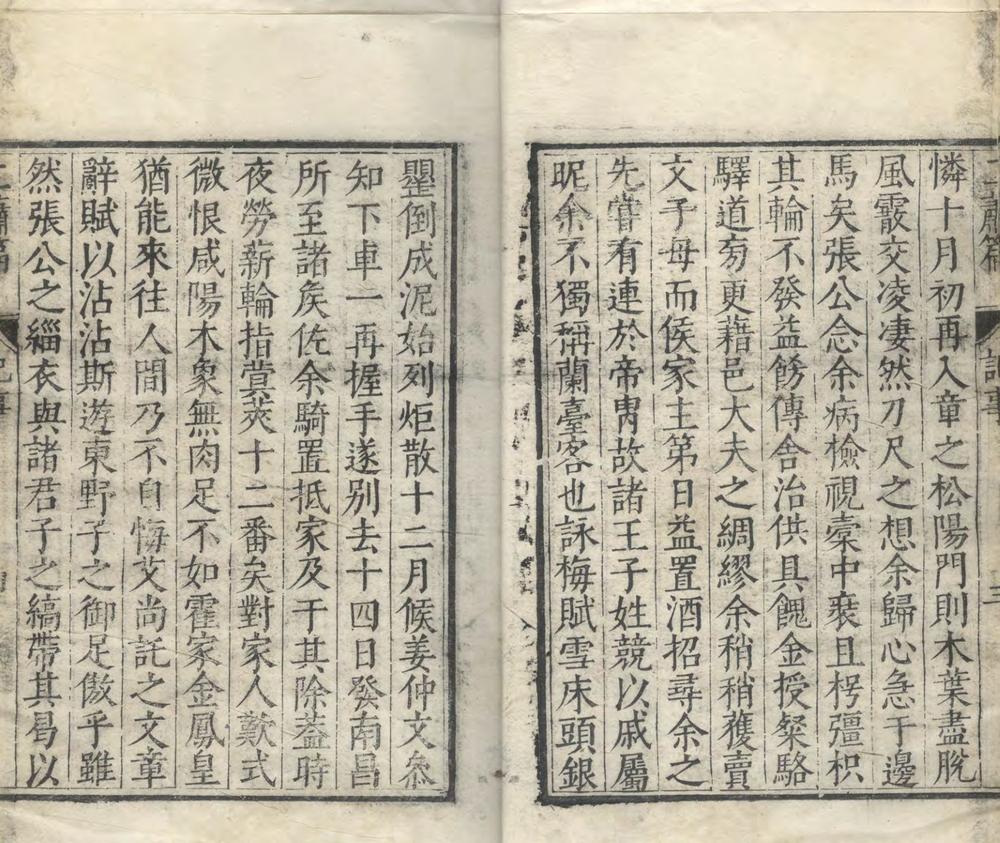 憐十月初再入章之松陽門則木葉盡脫
風霰交凌凄然刀尺之想余歸心急于邊
馬矣張公念余病檢視橐中裘且楞彊枳
其輪不發益餝傳舍治供具餽金授粲駱
驛道旁更藉邑大夫之綢繆余稍稍獲賣
文子母而侯家主第日益置酒招尋余之
先嘗有連於帝胄故諸王子姓競以戚屬
昵余不獨稱蘭臺客也詠梅賦雪床頭銀
罍倒成泥始列炬散十二月候姜仲文叅
知下車一再握手遂别去十四日發南昌
所至諸矦佐余騎置抵家及于其除葢時
夜勞薪輪指蓂莢十二番矣對家人歎式
微恨咸陽木象無肉足不如霍家金鳳皇
猶能來往人間乃不自悔艾尚託之文章
辭賦以沾沾斯遊東野子之御足倣乎雖
然張公之緇衣與諸君子之縞帶其曷以